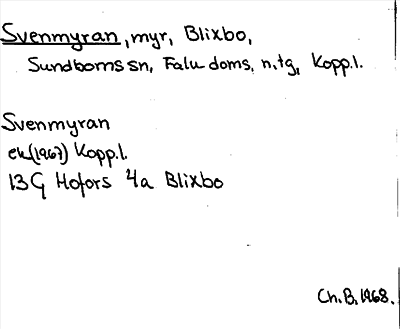 Svenmyran, myr, Blixbo,
Sundborns sn, Falu doms, n.tg, Kopp.l.
Svenmyran
ek(1967) Kopp.l.
13G Hofors 4a Blixbo
Ch.B. 1968.